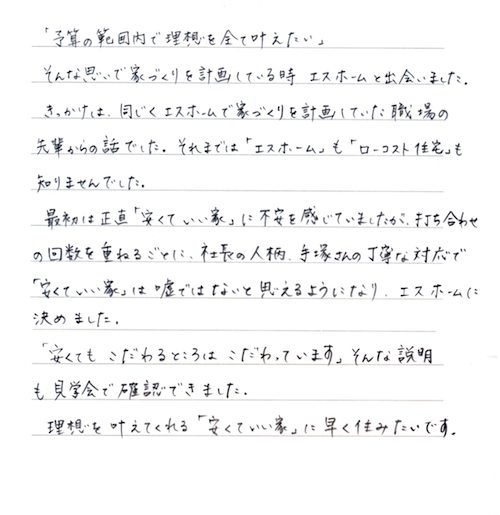 「予算の範囲内で理想を全て叶えたい」
そんな思いで家づくりを計画している時 エスホームと出会いました。
きっかけは、同じくエスホームで家づくりを計画していた職場の
先輩からの話でした。それまでは「エスホーム」も「ローコスト住宅」も
知りませんでした。
最初は正直「安くていい家」に不安を感じていましたが、打ち合わせ
の回数を重ねるごとに、社長の人柄、手塚さんの丁寧な対応で
「安くていい家」は嘘ではないと思えるようになり、エスホームに
決めました。
「安くても こだわるところは こだわっています」そんな説明
も見学会で確認できました。
理想を叶えてくれる「安くていい家」に早く住みたいです。